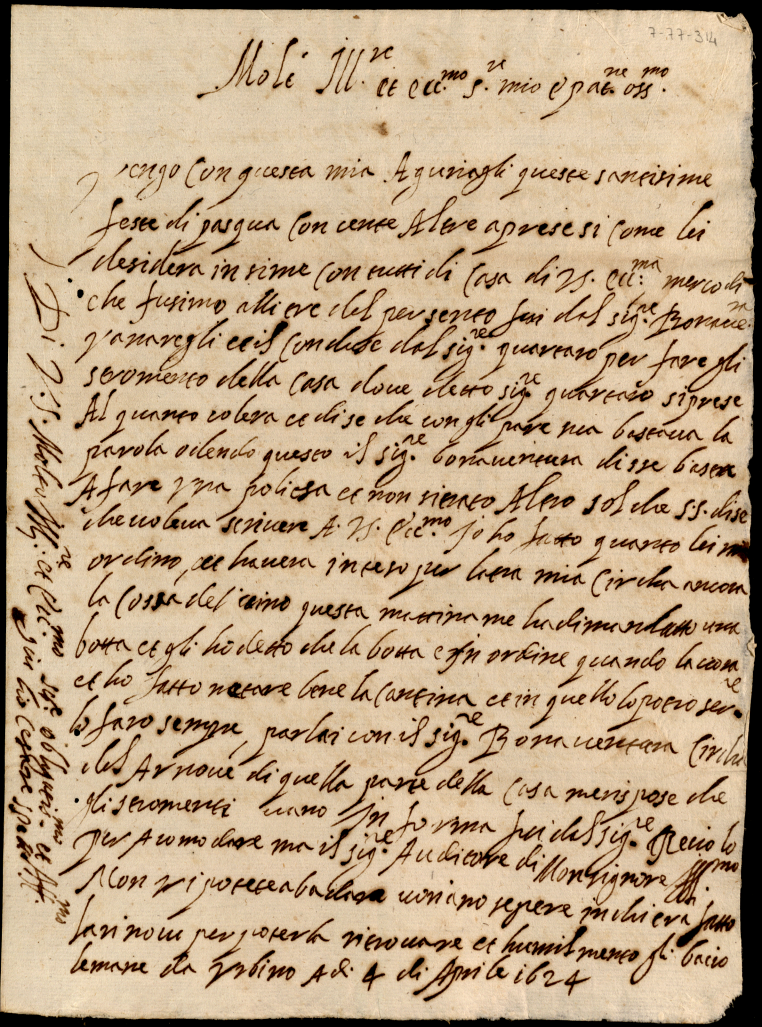 7-77-314
Molt' Ill.re et ecc.mo s.re mio e pat.ne oss.mo
vengo con questa mia Aguriagli queste santisime
feste di pasqua con cente Altre aprese si come lei
desidera insime con tutti di casa di V.S. ecc.ma mercodi
che fusimo alli tre del persento fui dal sig.re Bonave.ra
et il conduse dal sig.re quartaro per fare gli
stromento della casa doue detto sig.re quartaro si prese
Al quanto colera et dise che con gli pare sua bastaua la
parola odendo questo il sig.re bonaventura disse basta
A fare vna poliesa et non si trato Altro sol che s.s. dise
che voleua scriuere A. V.S. Ecc.mo Io ho fatto quanto lei mi
ordino, et hauera inteso per latra mia circha ancora
la cossa del uino questa mattina me ha dimandatto una
botta et gli ho detto che la botta e in ordine quando la uora
et ho fatto netare bene la cantina et in quello lo potro ser.re
lo faro sempre, parlai con il sig.re Bonaventura circha
del Arnoue di quella parte della casa me rispose che
gli stromenti uano in forma fui dal sig.re Recio lo
per Acomodare ma il sig.re Auditore di Monsignore Ill.mo
Non vi potete abadare uoriano sepere in chi era fatto
la rinoui per poterla ritrouare et humilmento gli bacio
lemane da vrbino A di 4 di Aprile 1624
Di V.S. Molto Ill.re et Ecc.mo sig.re oblig.mo et
Cesare